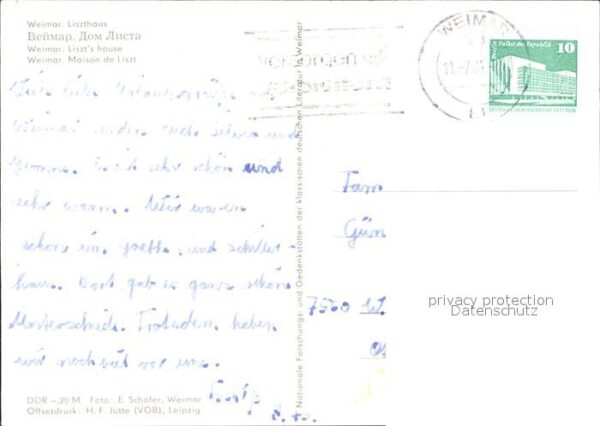 Weimar. Liszthaus
Веймар. Дом Листа
Weimar. Liszt's house
Weimar. Maison de Liszt
Viele liebe Urlaubsgrüße aus
Weimar senden euch und
Yvonne. Es ist sehr schön und
sehr warm. Wir waren
schon im Goethe und Schiller-
haus. Dort gab es ganz schöne
Unterschiede. Trotzdem haben
wir noch viel vor uns.
DDR –,20 M Foto: E. Schäfer, Weimar
Offsetdruck: H. F. Jütte (VOB), Leipzig
Nationale Forschungs- und Gedenkstätten der klassischen deutschen Literatur in Weimar
WEIMAR
Palast der Republik 10
Fam.
Gün
7500
privacy protection
Datenschutz